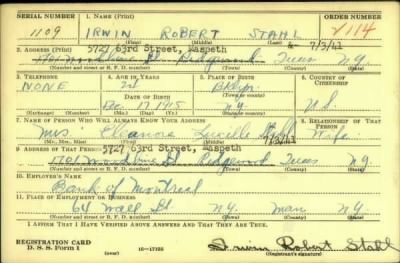 SERIAL NUMBER 1. NAME (Print) ORDER NUMBER
1109 IRWIN ROBERT STAHL V114
(First) (Middle) (Last)
2. ADDRESS (Print) 5727 63rd Street, Maspeth 7/3/41
1701 Woodbine St. Ridgewood N.Y.
(Number and street or R. F. D. number) (Town) (County) (State)
3. TELEPHONE 4. AGE IN YEARS 5. PLACE OF BIRTH 6. COUNTRY OF CITIZENSHIP
NONE Bklyn.
DATE OF BIRTH (Town or county)
Dec. 17 1915 N.Y. U.S.
(Exchange) (Number) (Mo.) (Day) (Yr.) (State or country)
7. NAME OF PERSON WHO WILL ALWAYS KNOW YOUR ADDRESS 8. RELATIONSHIP OF THAT PERSON
Mrs. Eleanora Lucille Stahl Wife
(Mr., Mrs., Miss) (First) (Middle) (Last)
9. ADDRESS OF THAT PERSON 5727 63rd Street, Maspeth
1701 Woodbine St. Ridgewood N.Y.
(Number and street or R. F. D. number) (Town) (County) (State)
10. EMPLOYER'S NAME
Bank of Montreal
11. PLACE OF EMPLOYMENT OR BUSINESS
64 Wall St. N.Y. Man N.Y.
(Number and street or R. F. D. number) (Town) (County) (State)
I AFFIRM THAT I HAVE VERIFIED ABOVE ANSWERS AND THAT THEY ARE TRUE.
REGISTRATION CARD
D. S. S. Form 1 16—17105 Irwin Robert Stahl
(Registrant's signature)